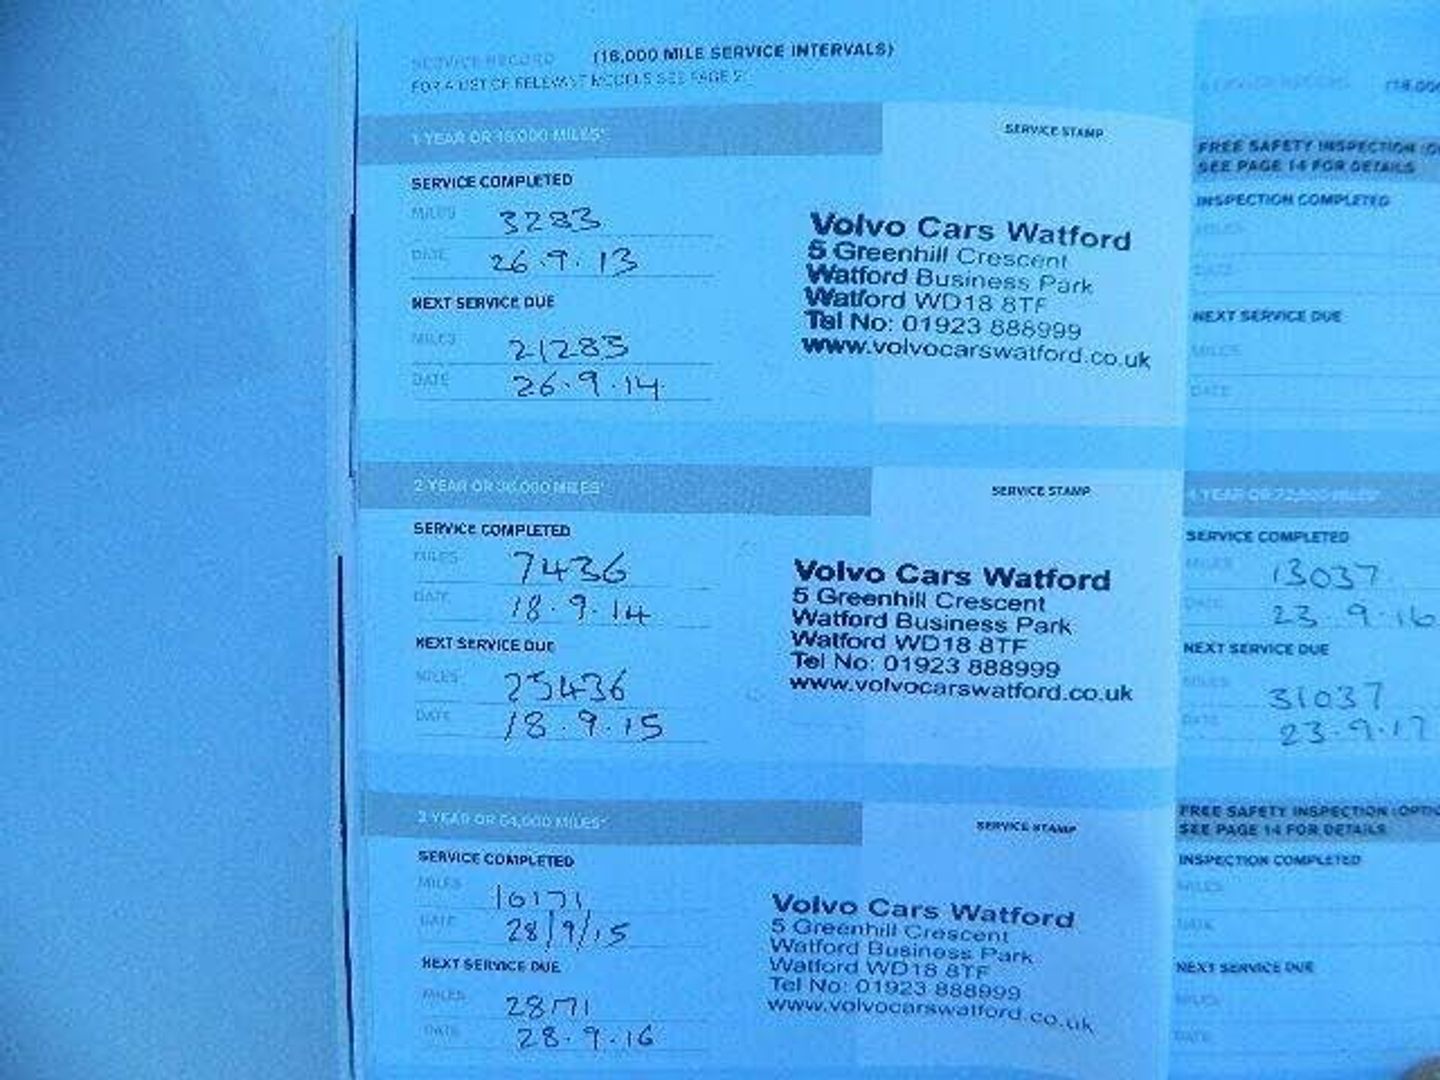 SERVICE RECORD (18,000 MILE SERVICE INTERVALS)
FOR A LIST OF RELEVANT MODELS SEE PAGE 2
1 YEAR OR 18,000 MILES*
SERVICE STAMP
SERVICE COMPLETED
MILES 3283
DATE 26.9.13
NEXT SERVICE DUE
MILES 21283
DATE 26.9.14
Volvo Cars Watford
5 Greenhill Crescent
Watford Business Park
Watford WD18 8TF
Tel No: 01923 888999
www.volvocarswatford.co.uk
2 YEAR OR 36,000 MILES*
SERVICE STAMP
SERVICE COMPLETED
MILES 7436
DATE 18.9.14
NEXT SERVICE DUE
MILES 25436
DATE 18.9.15
Volvo Cars Watford
5 Greenhill Crescent
Watford Business Park
Watford WD18 8TF
Tel No: 01923 888999
www.volvocarswatford.co.uk
3 YEAR OR 54,000 MILES*
SERVICE STAMP
SERVICE COMPLETED
MILES 10171
DATE 28/9/15
NEXT SERVICE DUE
MILES 28171
DATE 28.9.16
Volvo Cars Watford
5 Greenhill Crescent
Watford Business Park
Watford WD18 8TF
Tel No: 01923 888999
www.volvocarswatford.co.uk
SERVICE RECORD
FREE SAFETY INSPECTION
SEE PAGE 14 FOR DETAILS
INSPECTION COMPLETED
MILES
DATE
NEXT SERVICE DUE
MILES
DATE
4 YEAR OR 72,000 MILES*
SERVICE COMPLETED
MILES 13037
DATE 23.9.16
NEXT SERVICE DUE
MILES 31037
DATE 23.9.17
FREE SAFETY INSPECTION
SEE PAGE 14 FOR DETAILS
INSPECTION COMPLETED
MILES
DATE
NEXT SERVICE DUE
MILES
DATE